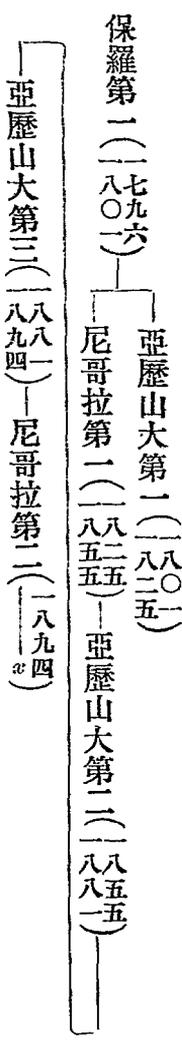 保羅第一(一七九六—一八〇一)
亞歷山大第一(一八〇一—一八二五)
尼哥拉第一(一八二五—一八五五)—亞歷山大第二(一八五五—一八八一)
亞歷山大第三(一八八一—一八九四)—尼哥拉第二(一八九四—x)